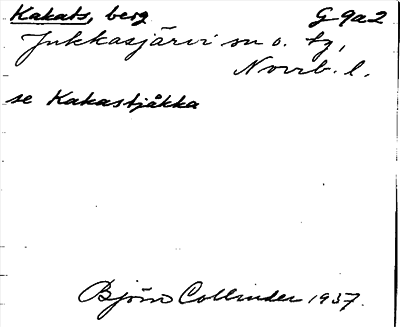 Kakats, berg G 9a2
Jukkasjärvi sn o. tg,
Norrb. l.
se Kakastjåkka
Björn Collinder 1937.